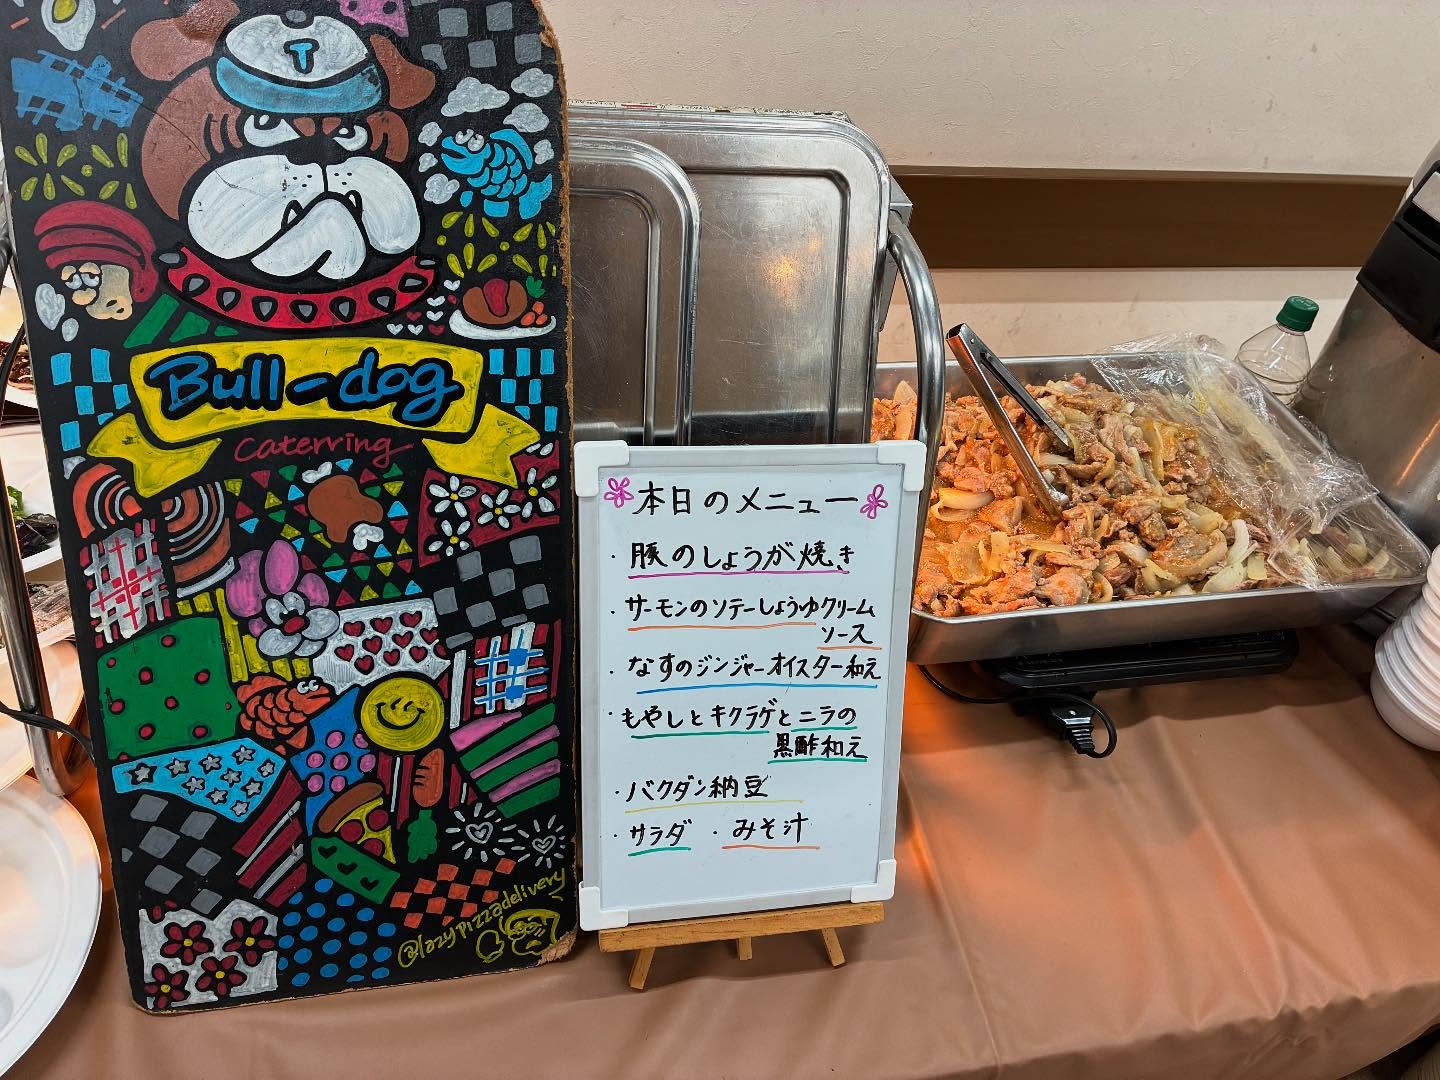 T
Bull-dog
caterring
@lazypizzadelivery
本日のメニュー
・豚のしょうが焼き
・サーモンのソテーしょうゆクリーム
ソース
・なすのジンジャーオイスター和え
・もやしとキクラゲとニラの
黒酢和え
・バクダン納豆
・サラダ ・みそ汁